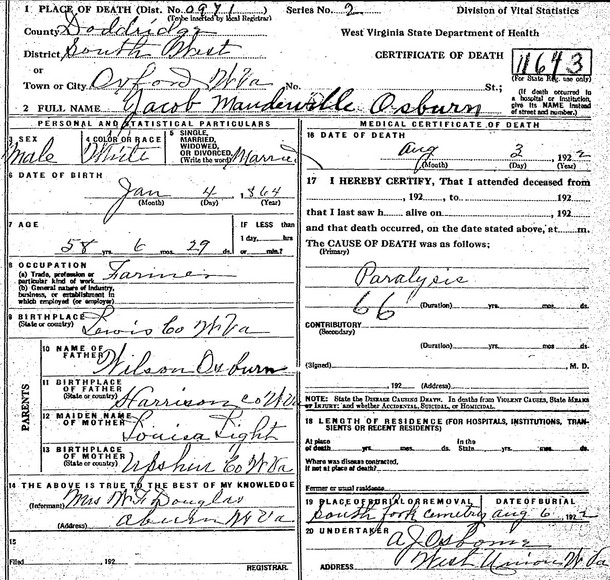 1 PLACE OF DEATH (Dist. No. 0971) Series No. 2 Division of Vital Statistics
(To be inserted by local Registrar)
County Doddridge West Virginia State Department of Health
District South West CERTIFICATE OF DEATH 11643
or (For State Reg. use only)
Town or City Oxford W Va No. St.; (If death occurred in a hospital or institution, give its NAME instead of street and number.)
2 FULL NAME Jacob Mandeville Osburn
PERSONAL AND STATISTICAL PARTICULARS
3 SEX Male
4 COLOR OR RACE White
5 SINGLE, MARRIED, WIDOWED, OR DIVORCED (Write the word) Married
6 DATE OF BIRTH
Jan 4, 1864
(Month) (Day) (Year)
7 AGE IF LESS than
1 day, hrs
58 yrs. 6 mos. 29 ds. or min.?
8 OCCUPATION
(a) Trade, profession or particular kind of work Farmer
(b) General nature of industry, business, or establishment in which employed (or employer)
9 BIRTHPLACE
(State or country) Lewis Co W Va
PARENTS
10 NAME OF FATHER Wilson Osburn
11 BIRTHPLACE OF FATHER
(State or country) Harrison Co W Va
12 MAIDEN NAME OF MOTHER Louisa Light
13 BIRTHPLACE OF MOTHER
(State or country) Upshur Co W Va
14 THE ABOVE IS TRUE TO THE BEST OF MY KNOWLEDGE
(Informant) Mrs W F Douglas
(Address) Auburn W Va
15
Filed , 192 REGISTRAR.
MEDICAL CERTIFICATE OF DEATH
16 DATE OF DEATH
Aug 3 1922
(Month) (Day) (Year)
17 I HEREBY CERTIFY, That I attended deceased from
, 192 , to , 192
that I last saw h alive on , 192
and that death occurred, on the date stated above, at m.
The CAUSE OF DEATH was as follows;
(Primary)
Paralysis
66 (Duration) yrs. mos. ds.
CONTRIBUTORY
(Secondary)
(Duration) yrs. mos. ds.
(Signed) , M. D.
, 192 (Address)
NOTE: State the DISEASE CAUSING DEATH. In deaths from VIOLENT CAUSES, State MEANS OF INJURY: and whether ACCIDENTAL, SUICIDAL, or HOMICIDAL.
18 LENGTH OF RESIDENCE (FOR HOSPITALS, INSTITUTIONS, TRANSIENTS OR RECENT RESIDENTS)
At place of death yrs. mos. ds. In the State yrs. mos. ds.
Where was disease contracted, If not at place of death?
Former or usual residence
19 PLACE OF BURIAL OR REMOVAL DATE OF BURIAL
South fork cemetry Aug 6, 1922
20 UNDERTAKER A J Osborne
ADDRESS West Union W Va